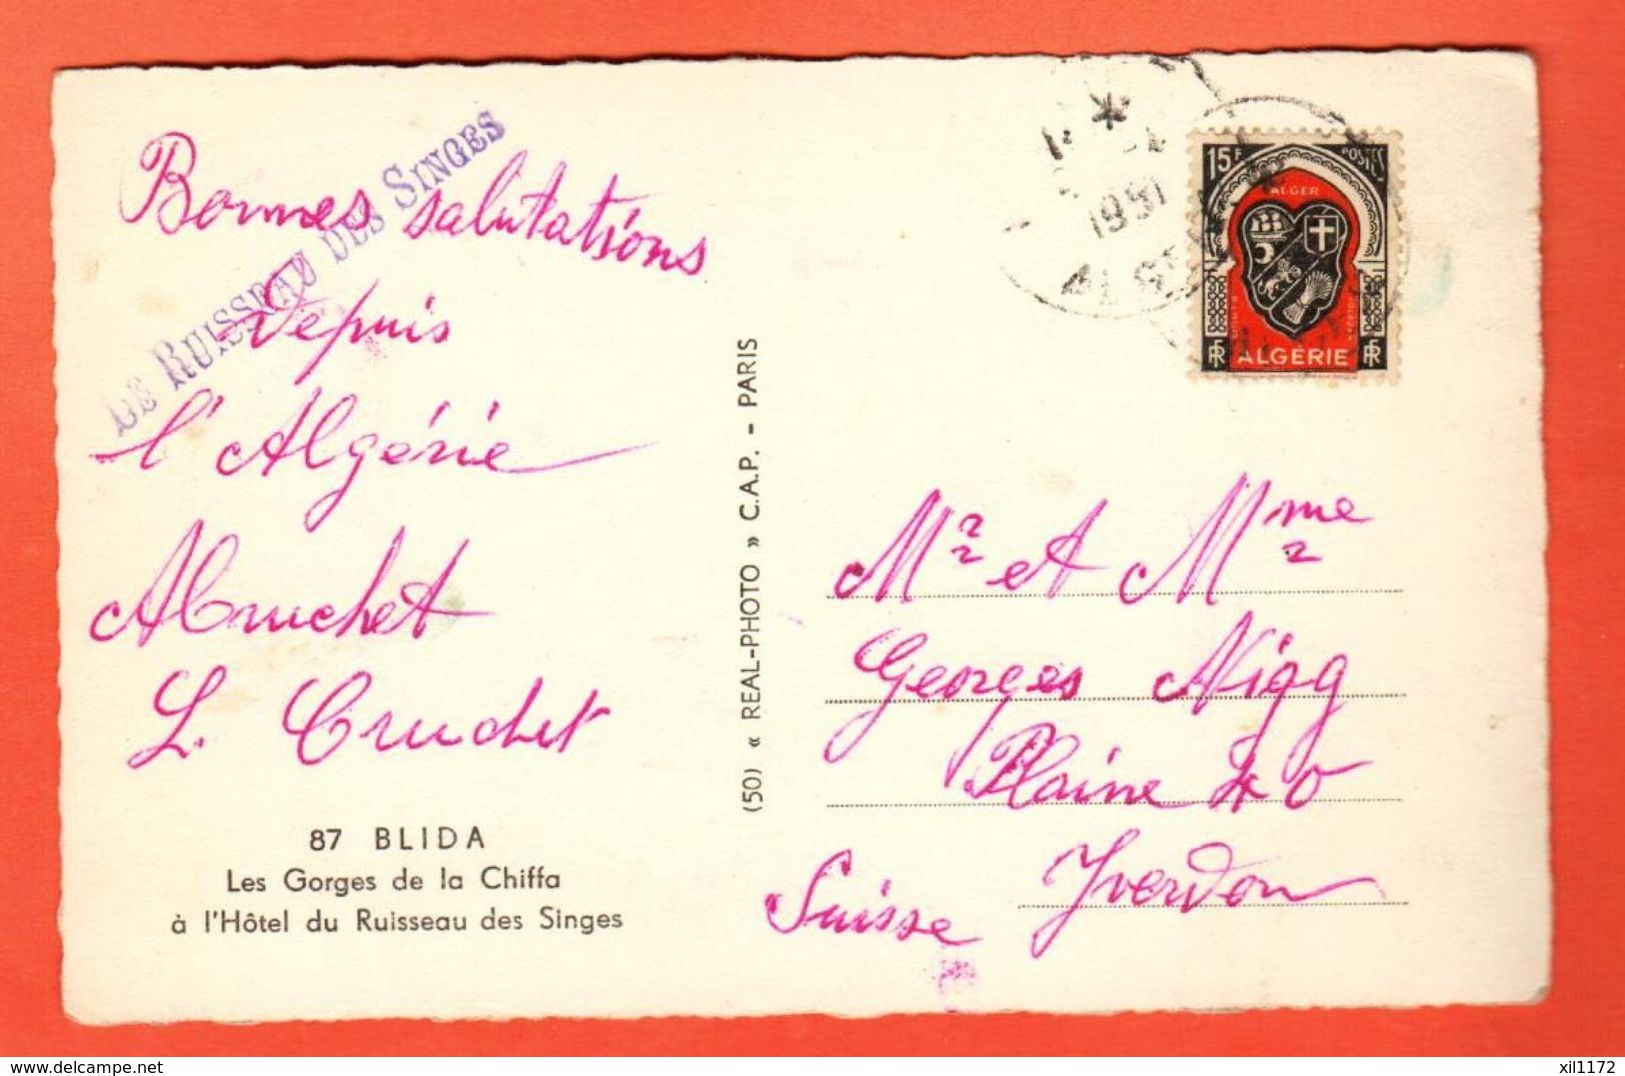 LE RUISSEAU DES SINGES
Bonnes salutations
Depuis
l'Algérie
ACruchet
L. Cruchet
87 BLIDA
Les Gorges de la Chiffa
à l'Hôtel du Ruisseau des Singes
(50) « REAL-PHOTO » C.A.P. - PARIS
1951
15F POSTES
ALGER
RF ALGÉRIE RF
Mr et Mme
Georges Nigg
Plaine 40
Yverdon
Suisse
delcampe.net
xil1172